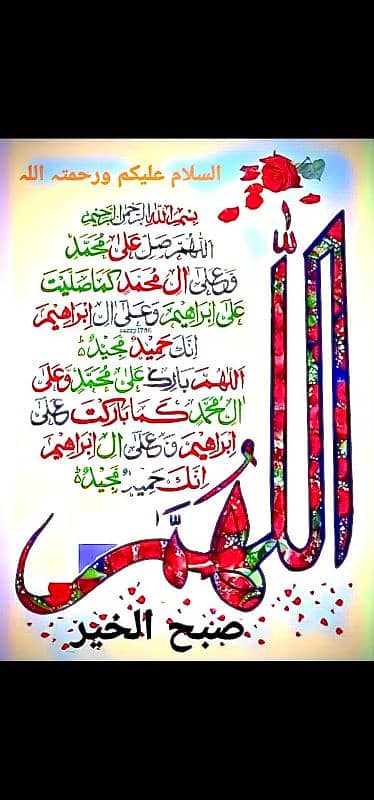 السلام عليكم ورحمتہ اللہ
بِسْمِ اللهِ الرَّحْمٰنِ الرَّحِيْمِ
اَللّٰهُمَّ صَلِّ عَلٰى مُحَمَّدٍ
وَّعَلٰى اٰلِ مُحَمَّدٍ كَمَا صَلَّيْتَ
عَلٰى اِبْرَاهِيْمَ وَعَلٰى اٰلِ اِبْرَاهِيْمَ
اِنَّكَ حَمِيْدٌ مَّجِيْدٌ
اَللّٰهُمَّ بَارِكْ عَلٰى مُحَمَّدٍ وَّعَلٰى
اٰلِ مُحَمَّدٍ كَمَا بَارَكْتَ عَلٰى
اِبْرَاهِيْمَ وَعَلٰى اٰلِ اِبْرَاهِيْمَ
اِنَّكَ حَمِيْدٌ مَّجِيْدٌ
اللّٰهُمَّ
صبح الخير